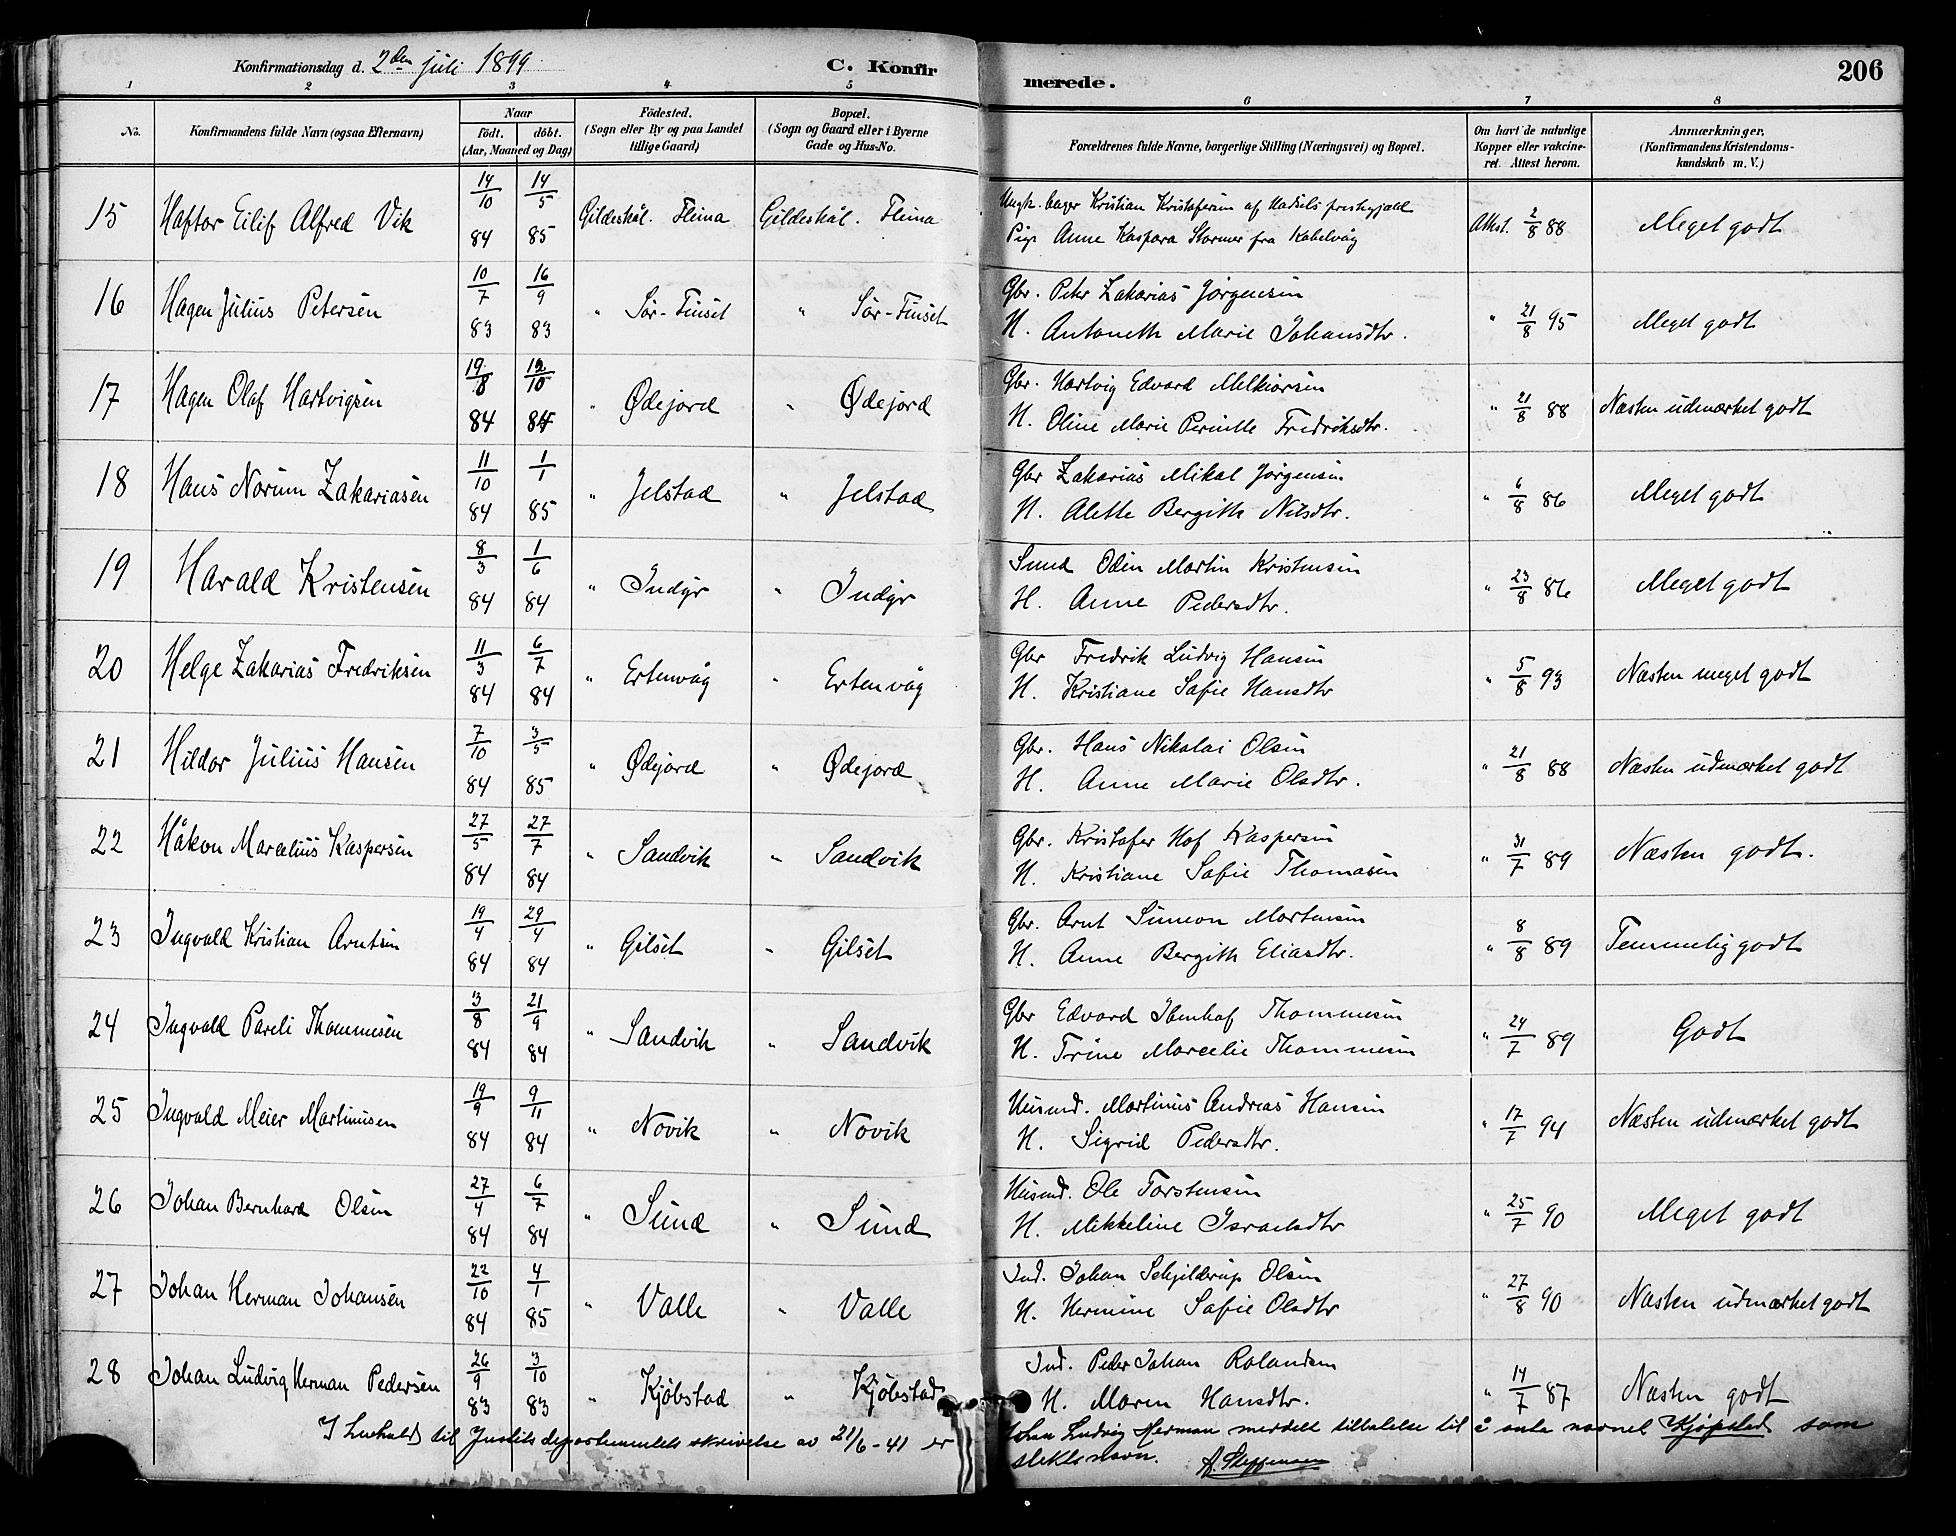 Konfirmationsdag d. 2den juli 1899
C. Konfirmerede. 206
1 2 3 4 5 6 7 8
No. Konfirmandens fulde Navn (ogsaa Efternavn) Naar født. døbt. (Aar, Maaned og Dag) Fødested. (Sogn eller By og paa Landet tillige Gaard) Bopæl. (Sogn og Gaard eller i Byerne Gade og Hus-No. Forældrenes fulde Navne, borgerlige Stilling (Næringsvei) og Bopæl. Om havt de naturlige Kopper eller vakcineret. Attest herom. Anmærkninger. (Konfirmandens Kristendomskundskab m. V.)
15 Haftor Eilif Alfred Vik 14/10 84 14/5 85 Gildeskål. Fleina Gildeskål. Fleina Ungk. bager Kristian Kristofersen af Hadsels prestegjæld Attst. 2/8 88 Meget godt
Pige Anne Kaspara Stormer fra Kabelvåg
16 Hagen Julius Petersen 10/7 83 16/9 83 " Sør-Finset " Sør-Finset Gbr. Peter Zakarias Jørgensen " 21/8 95 Meget godt
H. Antoneth Marie Johansdtr.
17 Hagen Olaf Hartvigsen 19/8 84 12/10 84 " Ødejord " Ødejord Gbr. Hartvig Edvard Melkiorsen " 21/8 88 Næsten udmærket godt
H. Oline Marie Pernille Fredriksdtr.
18 Hans Norum Zakariasen 11/10 84 1/1 85 " Jelstad " Jelstad Gbr Zakarias Mikal Jørgensen " 6/8 86 Meget godt
H. Alette Bergith Nilsdtr.
19 Harald Kristensen 8/3 84 1/6 84 " Indyr " Indyr Smed Odin Martin Kristensen " 23/8 86 Meget godt
H. Anne Pedersdtr.
20 Helge Zakarias Fredriksen 11/3 84 6/7 84 " Ertenvåg " Ertenvåg Gbr Fredrik Ludvig Hansen " 5/8 93 Næsten meget godt
H. Kristiane Sofie Hansdtr
21 Hildor Julius Hansen 7/10 84 3/5 85 " Ødejord " Ødejord Gbr. Hans Nikolai Olsen " 21/8 88 Næsten udmærket godt
H. Anne Marie Olsdtr.
22 Håkon Marcelius Kaspersen 27/5 84 27/7 84 " Sandvik " Sandvik Gbr. Kristofer Hof Kaspersen " 31/7 89 Næsten godt.
H. Kristiane Sofie Thomasen
23 Ingvald Kristian Arntsen 19/4 84 29/4 84 " Gilset " Gilset Gbr. Arnt Simeon Mortensen " 8/8 89 Temmelig godt
H. Anne Bergith Eliasdtr.
24 Ingvald Pareli Thommesen 3/8 84 21/9 84 " Sandvik " Sandvik Gbr Edvard Ibenhof Thommesen " 24/7 89 Godt
H. Trine Marcelie Thommesen
25 Ingvald Meier Martinusen 19/9 84 9/11 84 " Novik " Novik Husmd. Martinus Andreas Hansen " 17/7 94 Næsten udmærket godt
H. Sigrid Pedersdtr.
26 Johan Bernhard Olsen 27/4 84 6/7 84 " Sund " Sund Husmd. Ole Torstensen " 25/7 90 Meget godt
H. Mikkeline Israelsdtr
27 Johan Herman Johansen 22/10 84 4/1 85 " Valle " Valle Ind. Johan Schjelderup Olsen " 27/8 90 Næsten udmærket godt
H. Hermine Sofie Olsdtr
28 Johan Ludvig Herman Pedersen 26/9 83 3/10 83 " Kjøbstad " Kjøbstad Ind. Peder Johan Rolandsen " 14/7 87 Næsten godt
H. Maren Hansdtr.
I henhold til Justitsdepartementets skrivelse av 21/6-41 er Johan Ludvig Herman meddelt tillatelse til å anta navnet Kjøpstad som
slektsnavn. A. Steffensen